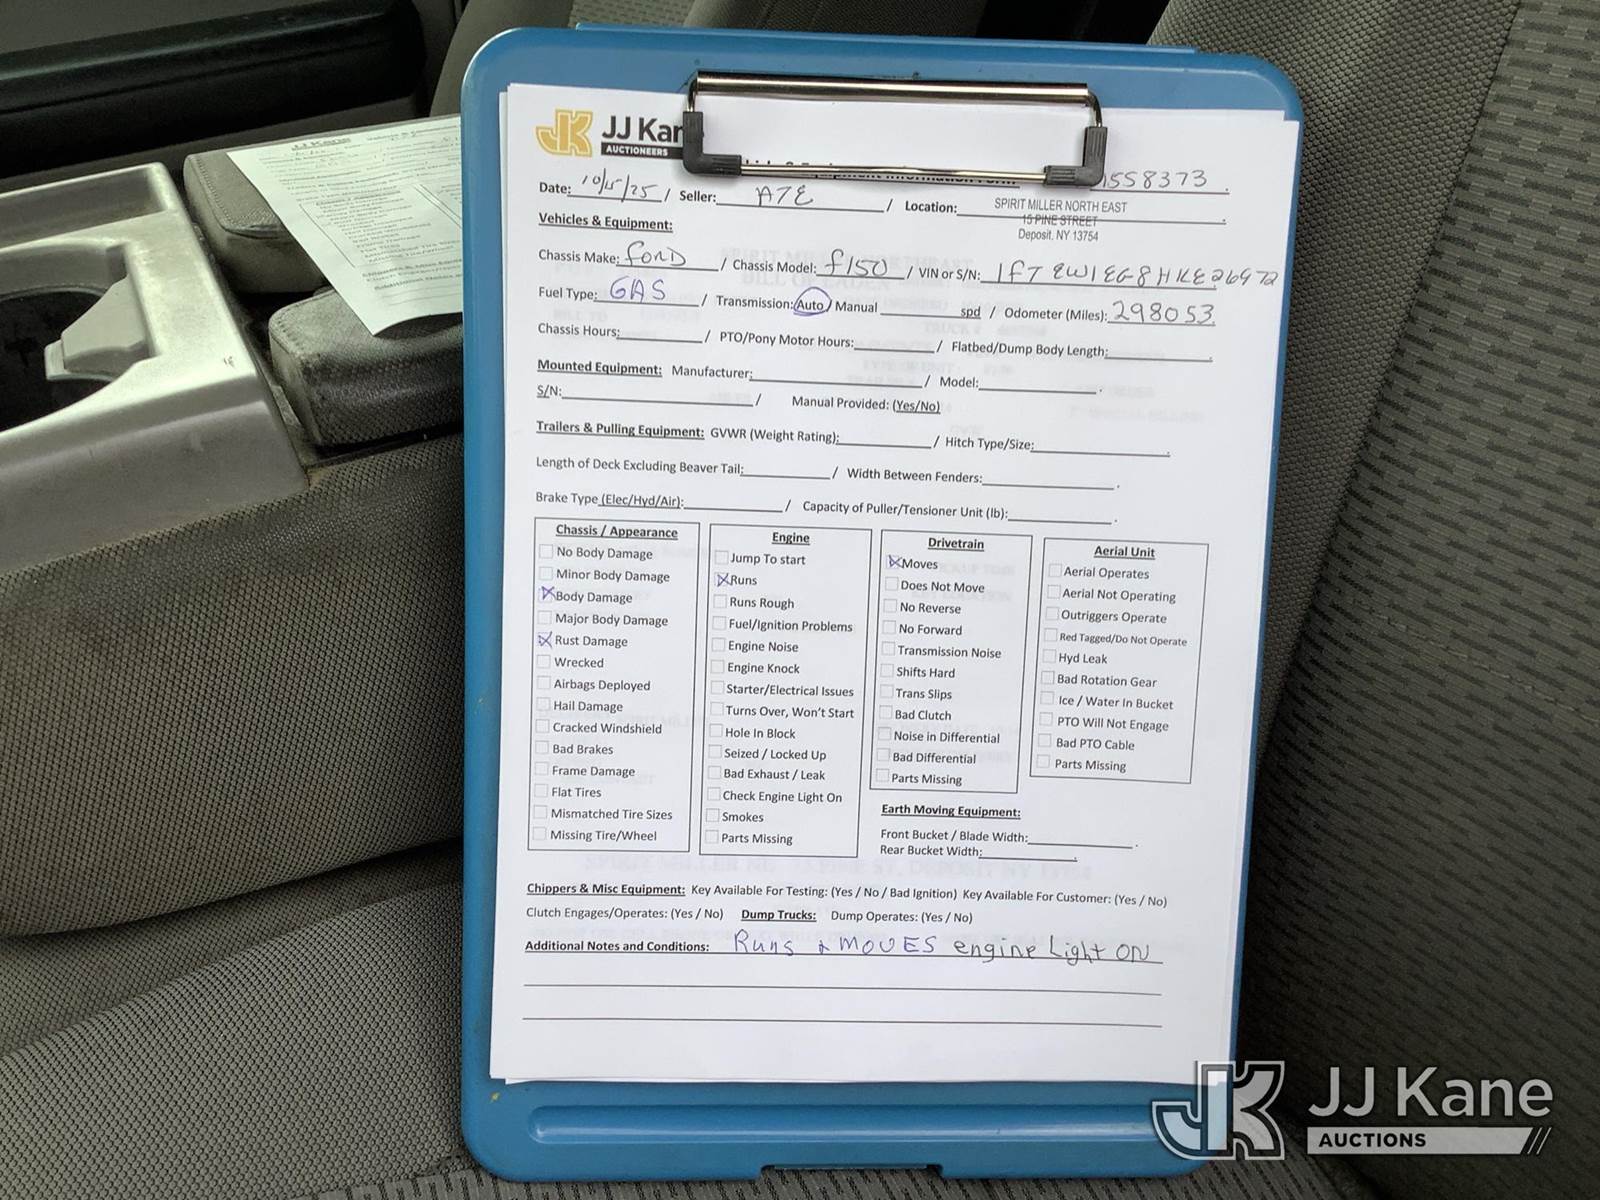 JJ Kane
AUCTIONEERS
1558373
Date: 10/15/25 / Seller: ATE / Location: SPIRIT MILLER NORTH EAST
15 PINE STREET
Deposit, NY 13754
Vehicles & Equipment:
Chassis Make: FORD / Chassis Model: F150 / VIN or S/N: 1FTEW1EG8HKE26972
Fuel Type: GAS / Transmission: Auto / Manual spd / Odometer (Miles): 298053
Chassis Hours: / PTO/Pony Motor Hours: / Flatbed/Dump Body Length:
Mounted Equipment: Manufacturer: / Model:
S/N: / Manual Provided: (Yes/No)
Trailers & Pulling Equipment: GVWR (Weight Rating): / Hitch Type/Size:
Length of Deck Excluding Beaver Tail: / Width Between Fenders:
Brake Type (Elec/Hyd/Air): / Capacity of Puller/Tensioner Unit (lb):
Chassis / Appearance
No Body Damage
Minor Body Damage
Body Damage
Major Body Damage
Rust Damage
Wrecked
Airbags Deployed
Hail Damage
Cracked Windshield
Bad Brakes
Frame Damage
Flat Tires
Mismatched Tire Sizes
Missing Tire/Wheel
Engine
Jump To start
Runs
Runs Rough
Fuel/Ignition Problems
Engine Noise
Engine Knock
Starter/Electrical Issues
Turns Over, Won't Start
Hole In Block
Seized / Locked Up
Bad Exhaust / Leak
Check Engine Light On
Smokes
Parts Missing
Drivetrain
Moves
Does Not Move
No Reverse
No Forward
Transmission Noise
Shifts Hard
Trans Slips
Bad Clutch
Noise in Differential
Bad Differential
Parts Missing
Aerial Unit
Aerial Operates
Aerial Not Operating
Outriggers Operate
Red Tagged/Do Not Operate
Hyd Leak
Bad Rotation Gear
Ice / Water In Bucket
PTO Will Not Engage
Bad PTO Cable
Parts Missing
Earth Moving Equipment:
Front Bucket / Blade Width:
Rear Bucket Width:
Chippers & Misc Equipment: Key Available For Testing: (Yes / No / Bad Ignition) Key Available For Customer: (Yes / No)
Clutch Engages/Operates: (Yes / No) Dump Trucks: Dump Operates: (Yes / No)
Additional Notes and Conditions: Runs & MOVES engine Light ON
JJ Kane
AUCTIONS